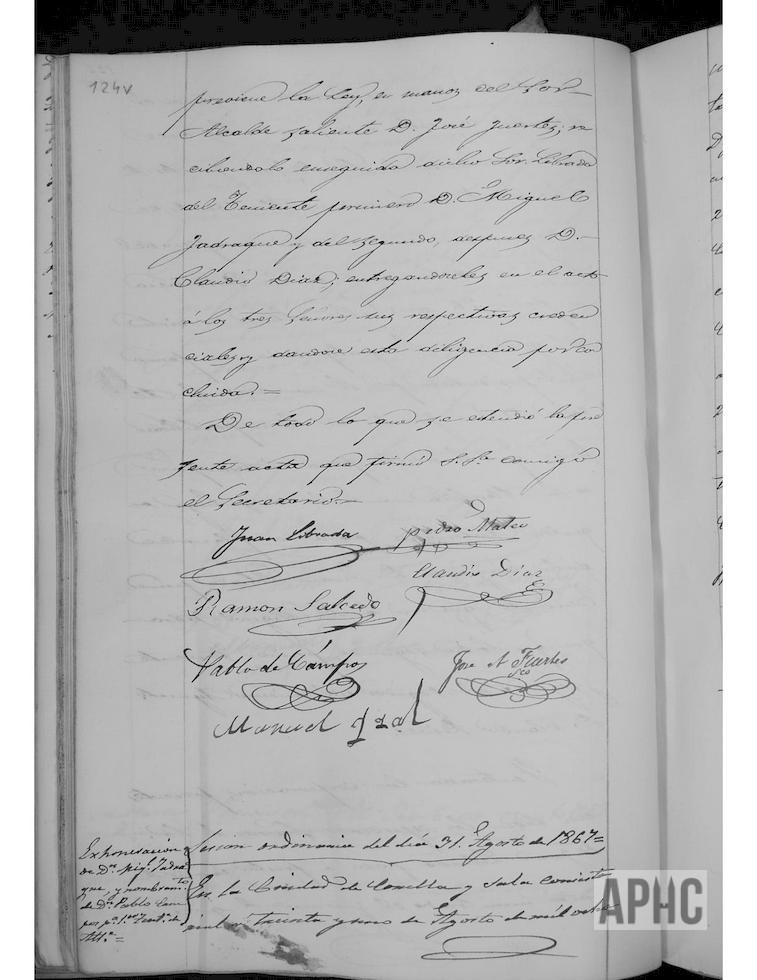 124v
previene la Ley, en manos del Sor.
Alcalde saliente D. José Fuertes; re
cibiendolo enseguida dicho Sor. Librada
del Teniente primero D. Miguel
Jadraque y del segundo, despues D.
Claudio Diaz; entregandoseles en el acto
á los tres Señores sus respectivas creden
ciales y dandose esta diligencia por con
cluida.=
De todo lo que se estendió la pre
sente acta que firmó S.Sa. conmigo
el Secretario.=
Juan Librada
Pedro Mateo
Claudio Diaz
Ramon Salcedo
Pablo de Cámpos
Jose A Fuertes
Manuel
Sesion ordinaria del dia 31. Agosto de 1867=
Exhoneracion
de Dn. Migl. Jadra
que, y nombramto.
de Dn. Pablo Cam
pos pa. 1er. Tente. de
Alle.=
En la Ciudad de y sala consisto
rial á treinta y uno de Agosto de mil ocho
APHC